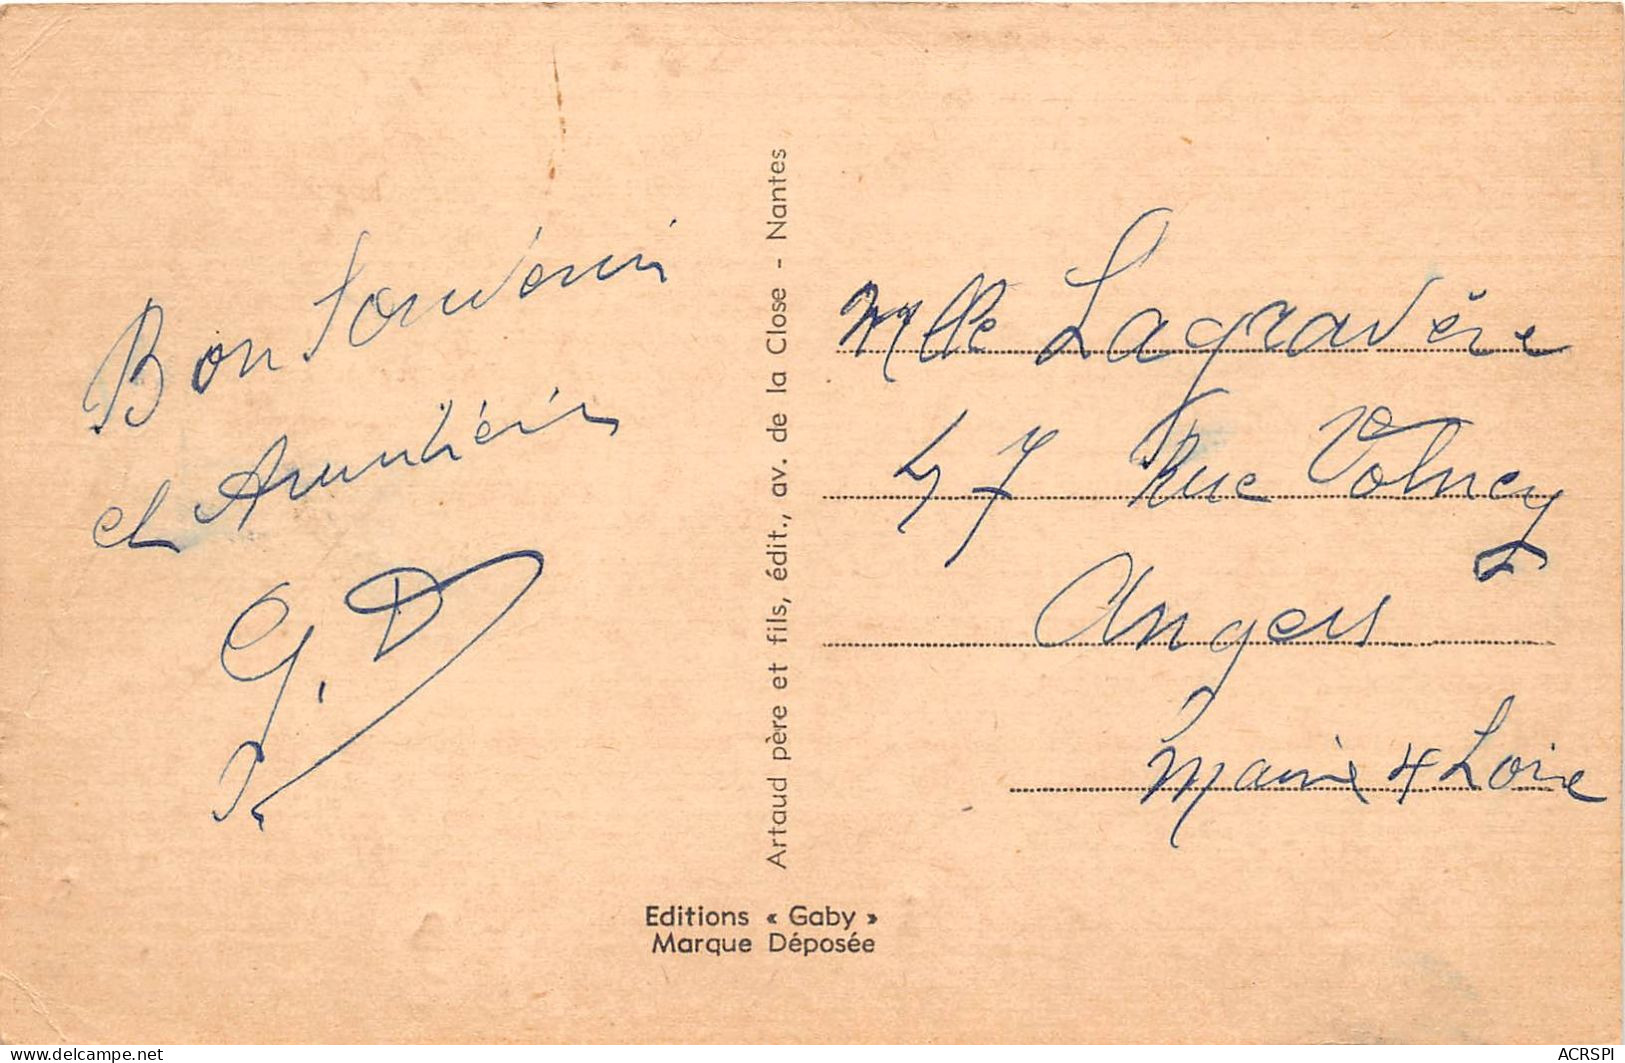 Bon Souvenir
et Amitiés
G. D
Artaud père et fils, édit., av. de la Close - Nantes
Mlle Lagravère
47 Rue Volney
Angers
Maine & Loire
Editions « Gaby »
Marque Déposée
ACRSPI